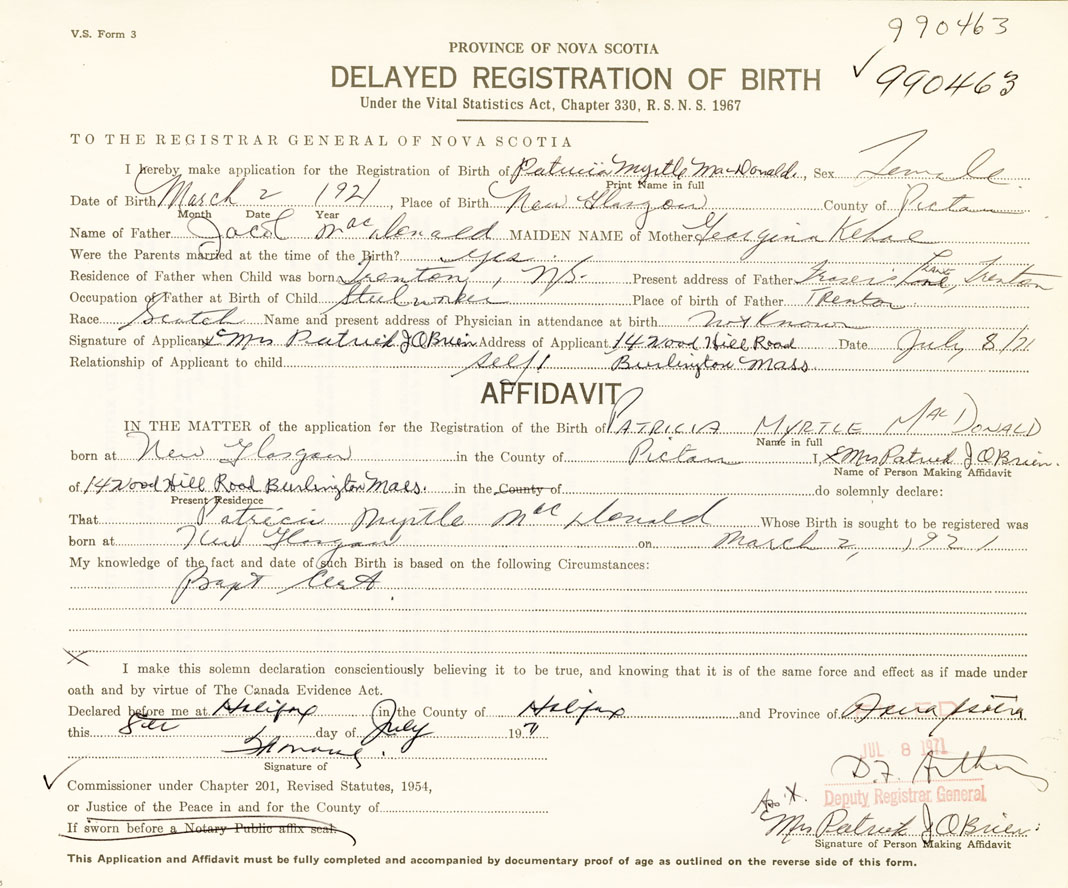 V.S. Form 3
990463
PROVINCE OF NOVA SCOTIA
DELAYED REGISTRATION OF BIRTH
✓ 990463
Under the Vital Statistics Act, Chapter 330, R. S. N. S. 1967
TO THE REGISTRAR GENERAL OF NOVA SCOTIA
I hereby make application for the Registration of Birth of Patricia Myrtle MacDonald, Sex Female
Print Name in full
Date of Birth March 2 1921, Place of Birth New Glasgow County of Pictou
Month Date Year
Name of Father Jacob MacDonald MAIDEN NAME of Mother Georgina Kehoe
Were the Parents married at the time of the Birth? Yes
Residence of Father when Child was born Trenton, N.S. Present address of Father Fraser's Lane, Trenton
Occupation of Father at Birth of Child Steelworker Place of birth of Father Trenton
Race Scotch Name and present address of Physician in attendance at birth Not Known
Signature of Applicant x Mrs Patrick J O'Brien Address of Applicant 14 Wood Hill Road Date July 8/71
Relationship of Applicant to child self Burlington Mass.
AFFIDAVIT
IN THE MATTER of the application for the Registration of the Birth of PATRICIA MYRTLE MacDONALD
Name in full
born at New Glasgow in the County of Pictou I, x Mrs Patrick J O'Brien.
Name of Person Making Affidavit
of 14 Wood Hill Road Burlington Mass. in the County of do solemnly declare:
Present Residence
That Patricia Myrtle MacDonald Whose Birth is sought to be registered was
born at New Glasgow on March 2, 1921
My knowledge of the fact and date of such Birth is based on the following Circumstances:
Bapt Cert.
X
I make this solemn declaration conscientiously believing it to be true, and knowing that it is of the same force and effect as if made under
oath and by virtue of The Canada Evidence Act.
Declared before me at Halifax in the County of Halifax and Province of Nova Scotia
this 8th day of July 1971
JUL 8 1971
Signature of
D.F. Arthur
✓ Commissioner under Chapter 201, Revised Statutes, 1954,
Deputy Registrar General
or Justice of the Peace in and for the County of
X.
If sworn before a Notary Public affix seal.
Mrs Patrick J O'Brien
Signature of Person Making Affidavit
This Application and Affidavit must be fully completed and accompanied by documentary proof of age as outlined on the reverse side of this form.